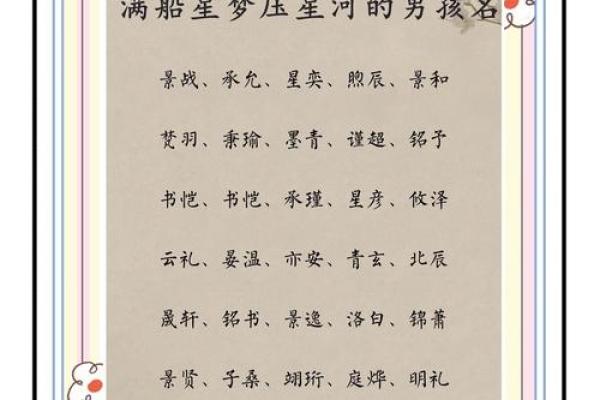 满船星梦压星河的男孩名
景战、承允、星奕、煦辰、景和
梵羽、秉瑜、墨青、谨超、铭予
书恺、书恺、承瑾、星彦、攸泽
云礼、晏温、亦安、青玄、北辰
晟轩、铭书、景逸、洛白、锦萧
景贤、子桑、翊珩、庭烨、明礼